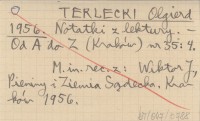 TERLECKI Olgierd
1956. Notatki z lektury. -
Od A do Z (Kraków) nr 35: 4.
M. in. rec. z: Wiktor J.,
Pieniny i Ziemia Sądecka, Kra-
ków 1956.